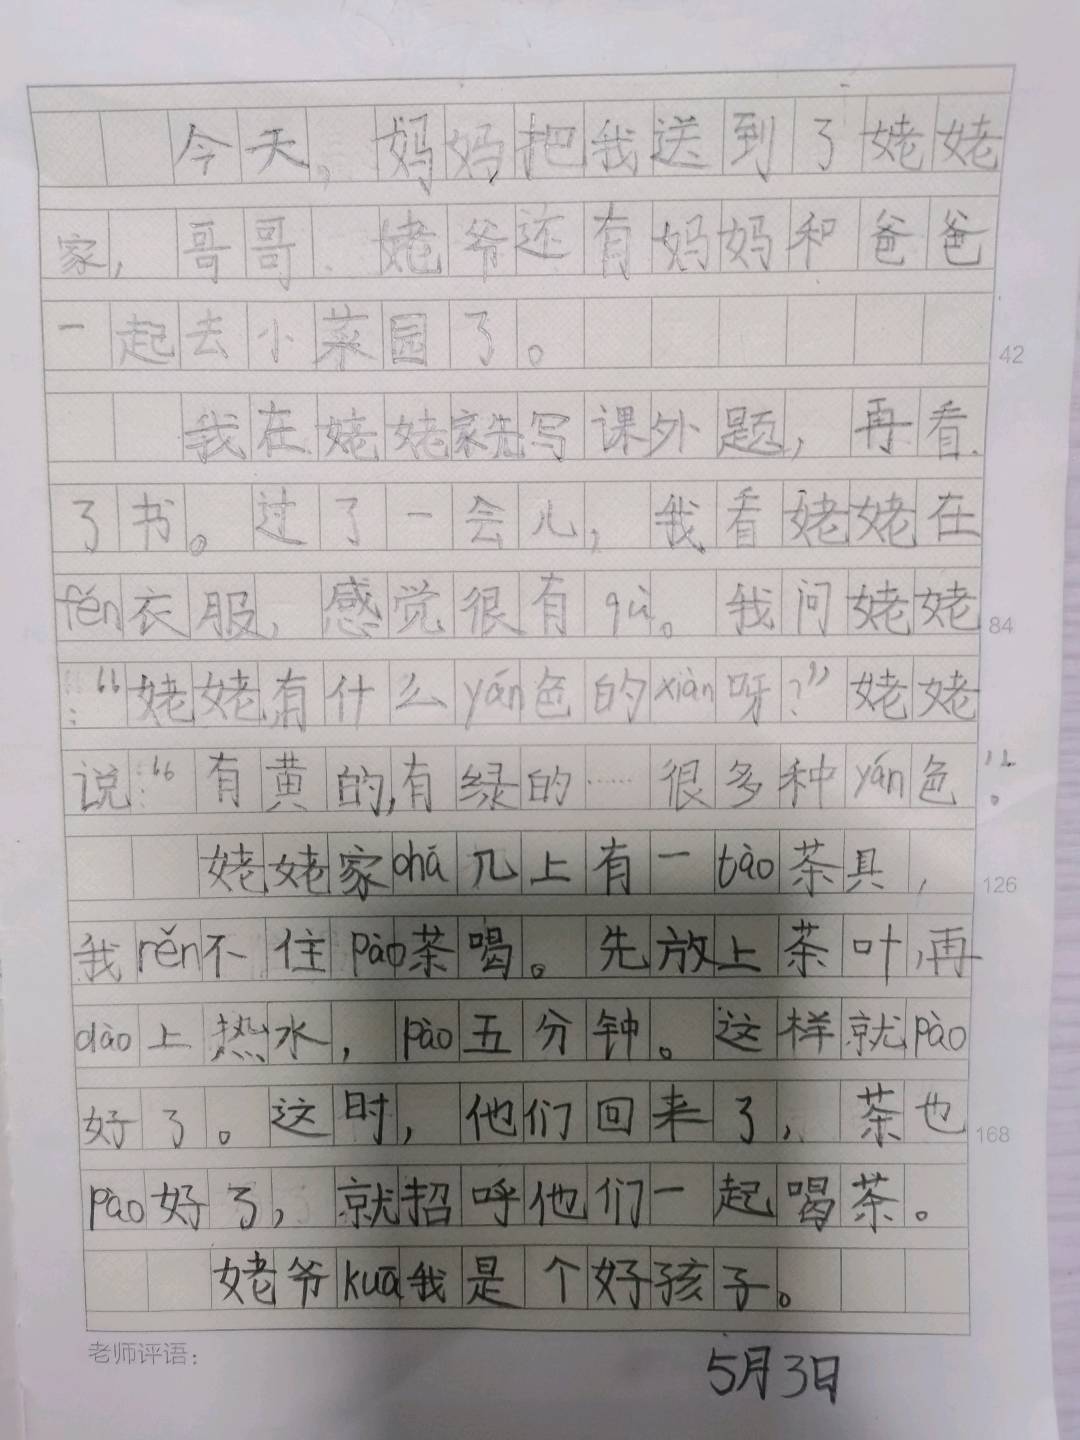 今天，妈妈把我送到了姥姥
家，哥哥、姥爷还有妈妈和爸爸
一起去小菜园了。
42
我在姥姥家先写课外题，再看
了书。过了一会儿，我看姥姥在
fěn衣服，感觉很有qù。我问姥姥
84
：“姥姥有什么yán色的xiàn呀？”姥姥
说：“有黄的，有绿的……很多种yán色”。
姥姥家chá几上有一tào茶具，
126
我rěn不住pào茶喝。先放上茶叶，再
dào上热水，pào五分钟。这样就pào
好了。这时，他们回来了，茶也
168
pào好了，就招呼他们一起喝茶。
姥爷kuā我是个好孩子。
老师评语：
5月3日